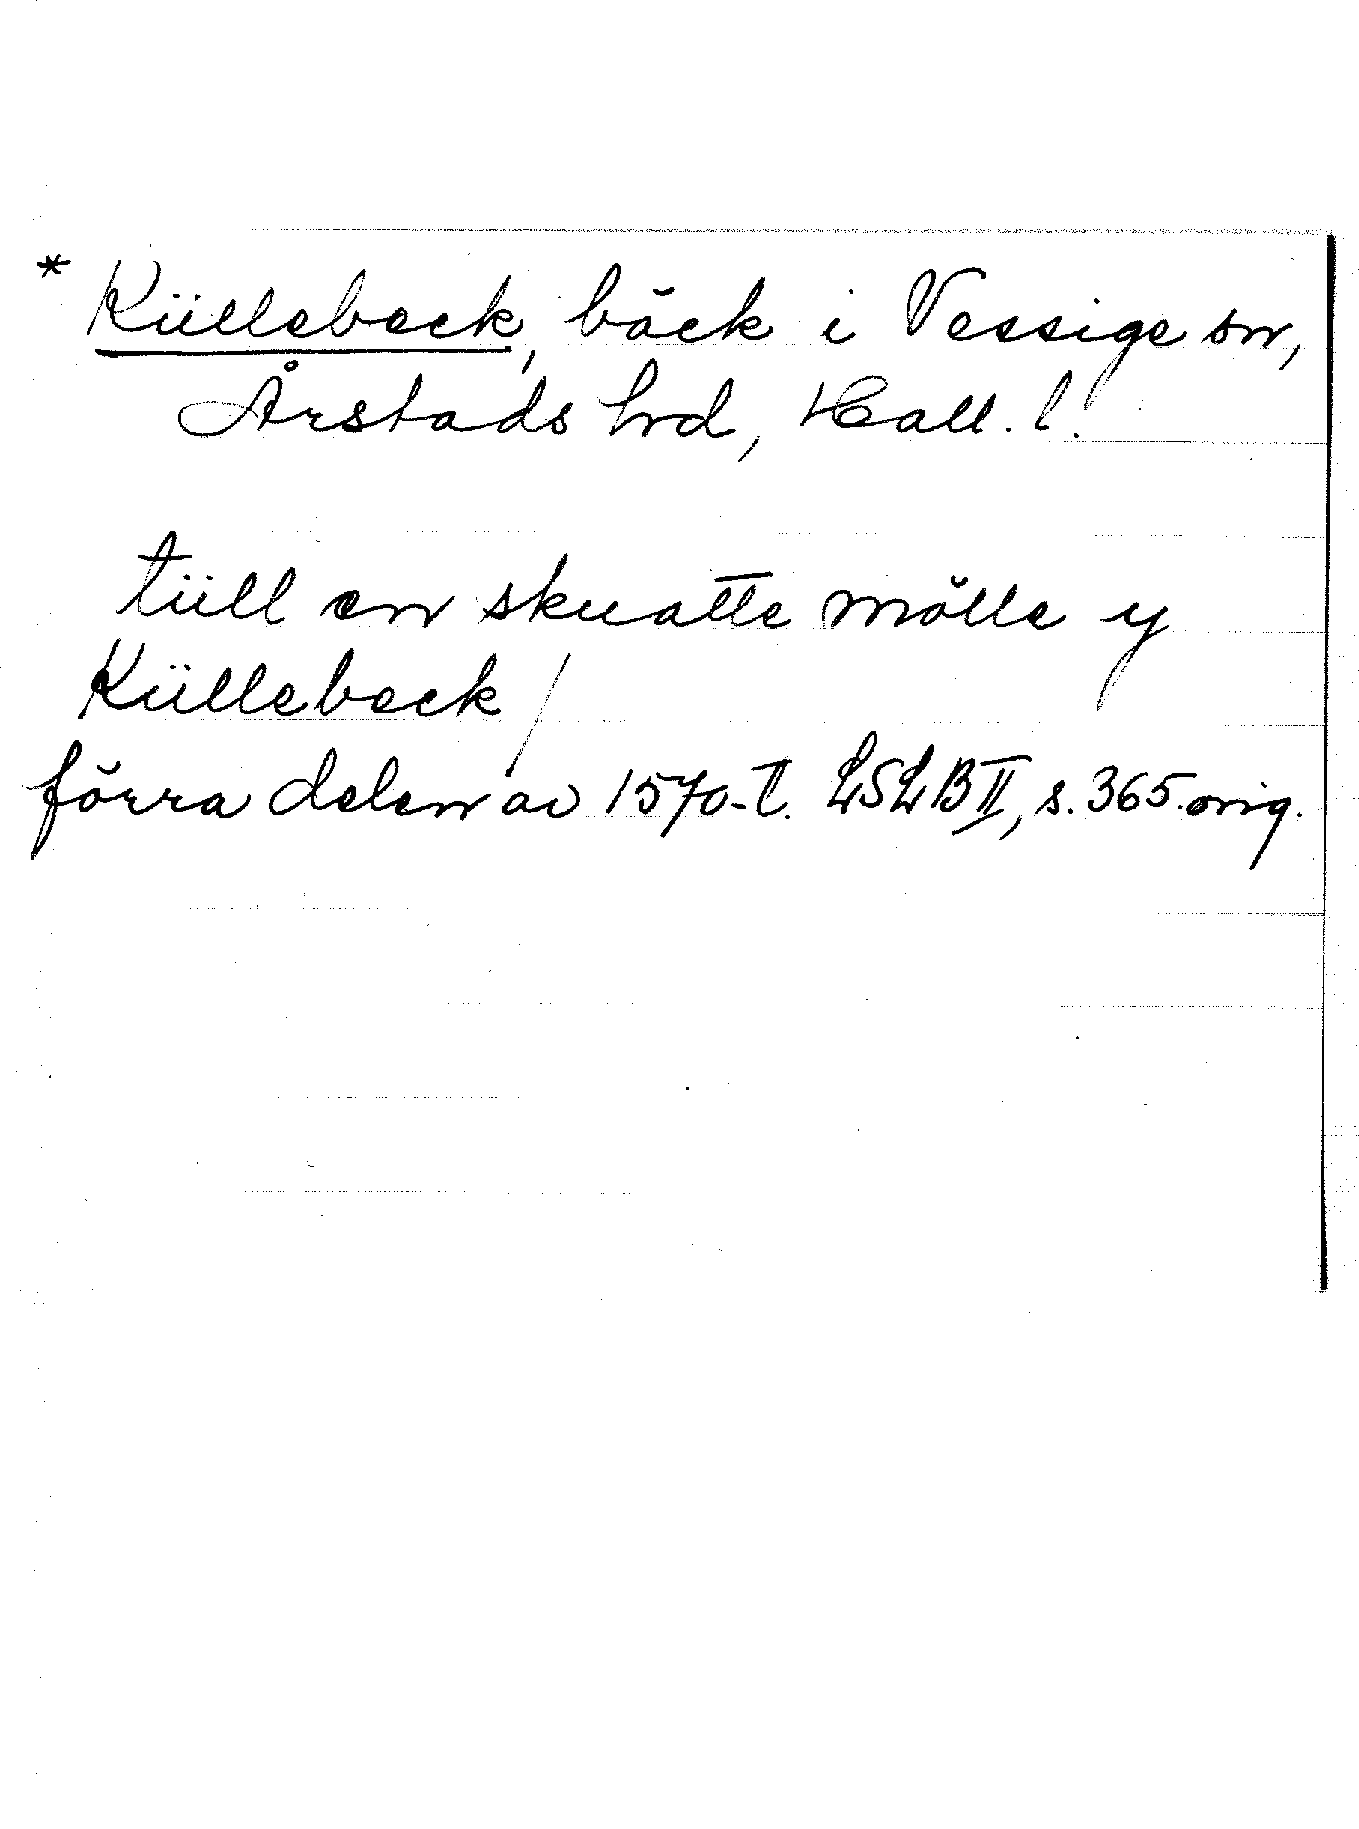 * Küllebeck, bäck i Vessige sn,
Årstads hd, Hall. l.
tüll en skuatte mölle y
Küllebeck/
förra delen av 1570-t. LSLB II, s. 365 orig.